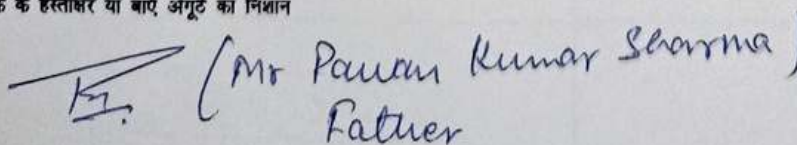 के हस्ताक्षर या बाएं अंगूठे का निशान
(Mr Pawan Kumar Sharma)
Father